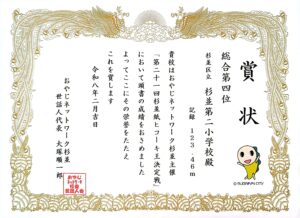 賞状
総合第四位
杉並区立 杉並第二小学校殿
記録 123.46m
貴校はおやじネットワーク杉並主催
「第二十一回杉並紙ヒコーキ王決定戦」
において頭書の成績をおさめました
よってここにその栄誉をたたえ
これを賞します
令和八年二月吉日
おやじネットワーク杉並
世話人代表 大塚順一郎
© SUGINAMI CITY